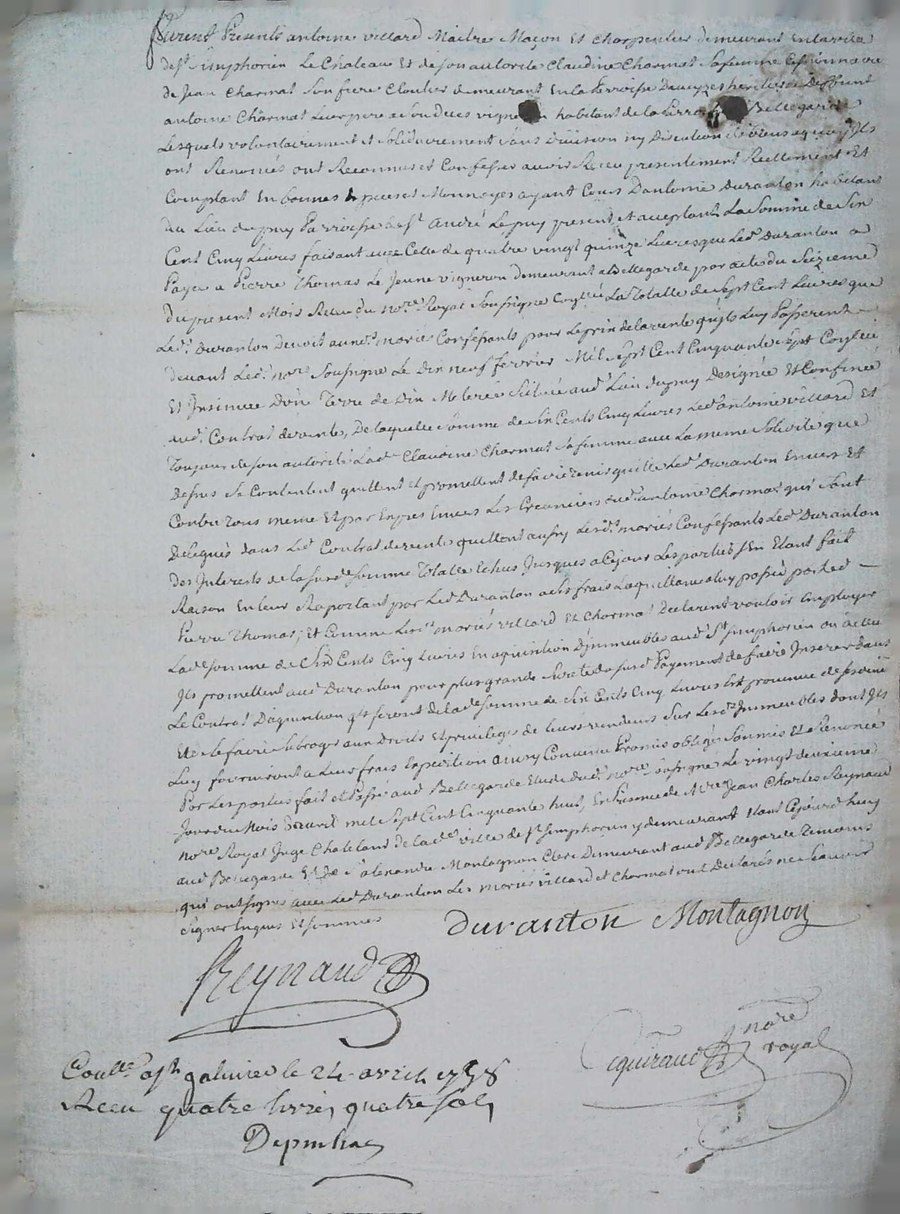 furent Presents antoine villard Maitre Maçon Et Charpentier demeurant En la ville
de st. Simphorien Le Chateau Et de son autorité Claudine Charmat sa femme
de Jean Charmat son frere Cloutier demeurant En la parroisse heritiers de Deffunt
antoine Charmat Leur pere a son deces vigneron habitant de la Bellegarde
Lesquels volontairement et solidairement sans Division ny Discution de biens a quoy Ils
ont Renoncés ont Reconnus et Confessés avoir Receu presentement Reellement Et
Comptant En bonnes Especes et Monnoyes ayant Cours D'antoine Duranton habitant
du Lieu du puy Parroisse de st. André Le puy present et acceptant La Somme de Six
Cent Cinq Livres faisant avec Celle de quatre vingt quinze Livres que Led. Duranton a
Payé a Pierre Thomas Le Jeune vigneron demeurant a Bellegarde par acte du Seizieme
du present Mois Receu du nore. Royal Soussigné La Totalle de Sept Cent Livres que
Led. Duranton Devoit auxd. mariés Confessants pour Le prix de la vente qu'ils Luy Passerent
devant Led. nore. Soussigné Le Dix neuf fevrier Mil Sept Cent Cinquante Sept
Et Insinué D'un Terre de Dix Meterée Scitué aud. Lieu du puy Designée Et Confinée
aud. Contrat de vente, De laquelle Somme de Six Cents Cinq Livres Led. antoine villard Et
Toujours de son autorité Lad. Claudine Charmat sa femme avec La meme Solidité que
Dessus Se Contentent quittent et promettent de faire tenir quitte Led. Duranton Envers Et
Contre Tous meme Et par Exprès Envers Les Creanciers dud. antoine Charmat qui sont
Delegués dans Led. Contrat de vente quittent aussy Lesds. mariés Confessants Led. Duranton
des Interets de la susd. Somme Totalle Echus Jusques a Ce Jour Les parties S'en Etant fait
Raison En leur Raportant par Led. Duranton a Ses frais La quittance a luy passée par led.
Pierre Thomas; Et Comme Lesd. mariés villard et Charmat Declarent vouloir Employer
Lad. Somme de Six Cents Cinq Livres En aquisition D'immeubles aud. St. Simphorien ou
Ils promettent aud. Duranton pour plus grande Sureté de Payement de faire Inserer dans
Le Contrat D'aquisition qu'ils feront de Lad. Somme de Six Cents Cinq Livres Est provenue de
Et de Le faire Subroger aux Droits Et privileges de Leurs vendeurs Sur Lesd. Immeubles dont Ils
Luy fourniront a Leurs frais Expedition ainsy Convenu Promis obligé Soumis Et Renoncé
Par Les parties fait et Passé aud. Bellegarde Etude dud. nore. Soussigné Le vingt deuxieme
Jour du Mois D'avril mil Sept Cent Cinquante huit, En Presence de Mre. Jean Charles Reynaud
nore. Royal Juge Chatelain de Lad. ville de st. Simphorien y demeurant Etant Ce Jourd'huy
aud. Bellegarde Et De S. alexandre Montagnon Clerc Demeurant aud. Bellegarde Temoins
qui ont Signés avec Led. Duranton Les mariés villard et Charmat ont Declarés ne Sçavoir
Signer Enquis Et Sommés
Duranton Montagnon
Reynaud
nore royal
Conlle. a st. galmier le 24 avril 1758
Receu quatre livres quatre sols